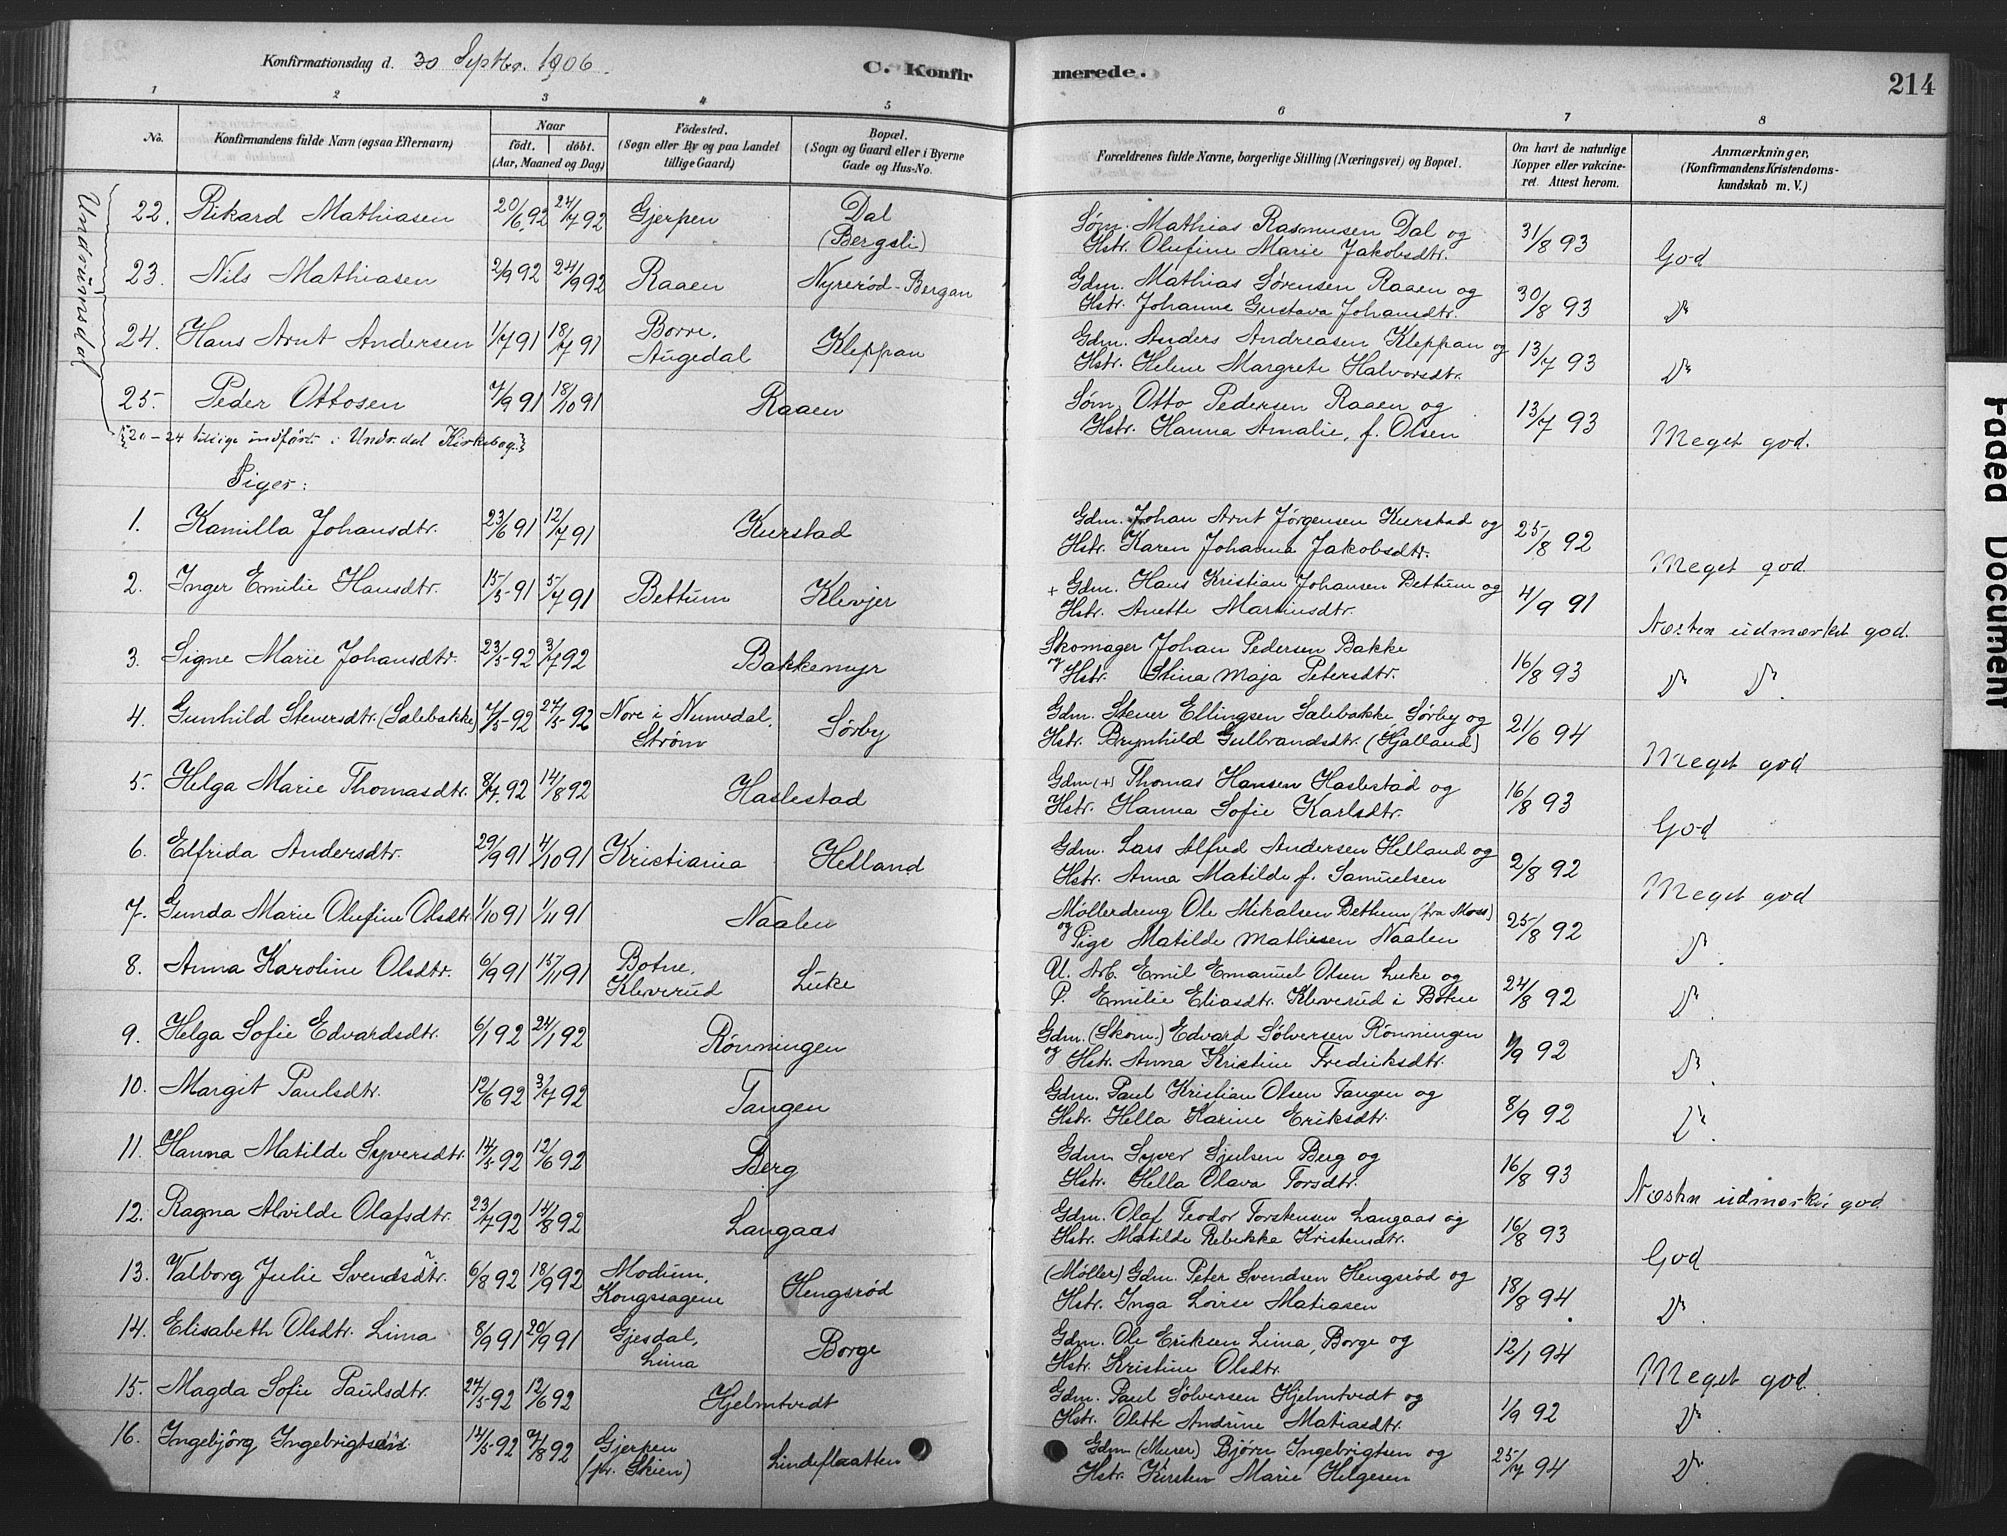 Konfirmationsdag d. 30 Septbr. 1906.
C. Konfirmerede.
214
1 2 3 4 5 6 7 8
No. Konfirmandens fulde Navn (ogsaa Efternavn) Naar født. døbt. (Aar, Maaned og Dag) Fødested. (Sogn eller By og paa Landet tillige Gaard) Bopæl. (Sogn og Gaard eller i Byerne Gade og Hus-No. Forældrenes fulde Navne, borgerlige Stilling (Næringsvei) og Bopæl. Om havt de naturlige Kopper eller vakcineret. Attest herom. Anmærkninger, (Konfirmandens Kristendomskundskab m. V.)
Undrumsdal
22. Rikard Mathiasen 20/6 92 24/7 92 Gjerpen Dal (Bergsli) Søm. Mathias Rasmusen Dal og Hstr. Olufine Marie Jakobsdtr. 31/8 93 God
23. Nils Mathiasen 2/9 92 24/9 92 Raaen Nyrerød-Bergan Gdm. Mathias Sørensen Raaen og Hstr. Johanne Gustava Johansdtr. 30/8 93 Do
24. Hans Arnt Andersen 1/7 91 18/7 91 Borre, Augedal Kleppan Gdm. Anders Andreasen Kleppan og Hstr. Helene Margrete Halvorsdtr. 13/7 93 Do
25. Peder Ottosen 7/9 91 18/10 91 Raaen Søm. Otto Pedersen Raaen og Hstr. Hanna Amalie, f. Olsen 13/7 93 Meget god.
{20-24 tillige indført i Undr.dal Kirkebog.}
Piger:
1. Kamilla Johansdtr. 23/6 91 12/7 91 Kurstad Gdm. Johan Arnt Jørgensen Kurstad og Hstr. Karen Johanna Jakobsdtr. 25/8 92 Meget god
2. Inger Emilie Hansdtr. 15/5 91 5/7 91 Bettum Klevjer + Gdm. Hans Kristian Johansen Bettum og Hstr. Anette Martinsdtr. 4/9 91 Næsten udmærket god.
3. Signe Marie Johansdtr. 23/5 92 3/7 92 Bakkemyr Skomager Johan Pedersen Bakke og Hstr. Stina Maja Petersdtr. 16/8 93 Do Do.
4. Gunhild Steversdtr. (Salebakke) 7/5 92 27/5 92 Nore i Numedal, Strøm Sørby Gdm. Stener Ellingsen Salebakke, Sørby og Hstr. Brynhild Gulbrandsdtr. (Hjalland) 21/6 94 Meget god
5. Helga Marie Thomasdtr. 8/7 92 14/8 92 Haslestad Gdm (+) Thomas Hansen Haslestad og Hstr. Hanna Sofie Karlsdtr. 16/8 93 God
6. Elfrida Andersdtr. 29/9 91 4/10 91 Kristiania Helland Gdm. Lars Alfred Andersen Helland og Hstr. Anna Matilde f. Samuelsen 2/8 92 Meget god
7. Gunda Marie Olufine Olsdtr 1/10 91 1/11 91 Naalen Møllerdreng Ole Mikalsen Bettum (fra Moss) og Pige Matilde Mathisen Naalen 25/8 92 Do.
8. Anna Karoline Olsdtr. 6/9 91 15/11 91 Botne, Kleverud Luke U. Arb. Emil Emanuel Olsen Luke og P. Emilie Eliasdtr. Kleverud i Botne 24/8 92 Do.
9. Helga Sofie Edvardsdtr. 6/1 92 24/1 92 Rønningen Gdm. (Skom.) Edvard Sølversen Rønningen og Hstr. Anna Kristine Fredriksdtr. 1/9 92 Do.
10. Margit Paulsdtr. 12/6 92 3/7 92 Tangen Gdm. Paul Kristian Olsen Tangen og Hstr. Hella Karine Eriksdtr. 8/9 92 Do.
11. Hanna Matilde Syversdtr. 14/5 92 12/6 92 Berg Gdm Syver Sjulsen Berg og Hstr. Hella Olava Torsdtr. 16/8 93 Næsten udmærket god
12. Ragna Alvilde Olafsdtr. 23/7 92 14/8 92 Langaas Gdm. Olaf Teodor Torstensen Langaas og Hstr. Matilde Rebekka Kristensdtr. 16/8 93 God
13. Valborg Julie Svendsdtr. 6/8 92 18/9 92 Modum, Kongssagene Hengsrød (Møller) Gdm. Peter Svendsen Hengsrød og Hstr. Inga Lovise Matiasen 18/8 94 Do.
14. Elisabeth Olsdtr. Lima 8/9 91 20/9 91 Gjesdal, Lima Borge Gdm. Ole Eriksen Lima, Borge og Hstr. Kristine Olsdtr. 12/1 94 Meget god
15. Magda Sofie Paulsdtr. 24/5 92 12/6 92 Hjelmtvedt Gdm. Paul Sølversen Hjelmtvedt og Hstr. Olette Andrine Matiasdtr. 1/9 92 Do.
16. Ingebjørg Ingebrigtsen 14/5 92 7/8 92 Gjerpen (pr. Skien) Lindeflaatten Gdm (Murer) Bjørn Ingebrigtsen og Hstr. Kirsten Marie Helgesen 25/7 94 Do.
Faded Document